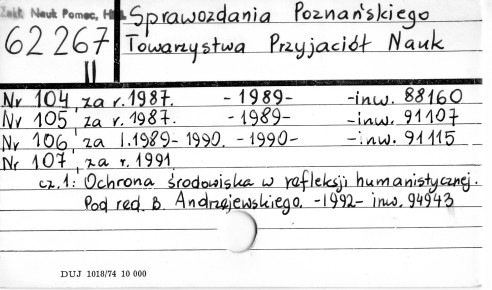 Zakł. Nauk Pomoc, H
Sprawozdania Poznańskiego
62 267
Towarzystwa Przyjaciół Nauk
II
Nr 104, za r. 1987. -1989- -inw. 88160
Nr 105, za r. 1987. -1989- -inw. 91107
Nr 106, za l. 1989-1990. -1990- -inw. 91115
Nr 107, za r. 1991
cz. 1: Ochrona środowiska w refleksji humanistycznej.
Pod red. B. Andrzejewskiego. -1992- inw. 94943
DUJ 1018/74 10 000